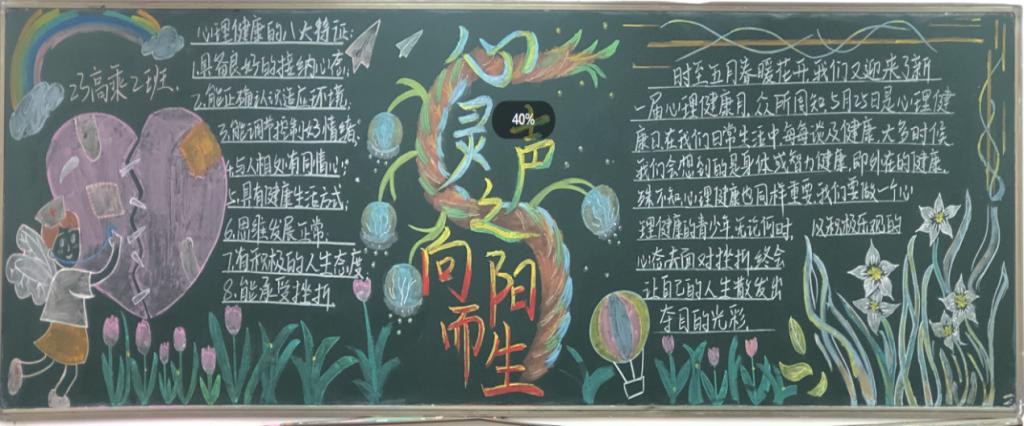 心理健康的八大特征:
1.具备良好的接纳心态,
23高乘2班.
2.能正确认识适应环境,
3.能调节控制好情绪,
4.与人相处有同情心;
5.具有健康生活方式,
6.思乘发展正常:
7.有积极的人生态度
8.能承受挫折.
心灵之声
向阳而生
40%
时至五月春暖花开,我们又迎来了新
一届心理健康月,众所周知5月25日是心理健
康日在我们日常生活中每每谈及健康大多时候
我们会想到的是身体或智力健康即外在的健康.
殊不知心理健康也同样重要,我们要做一个心
理健康的青少年无论何时, 以积极乐观的
心态来面对挫折终会
让自己的人生散发出
夺目的光彩.